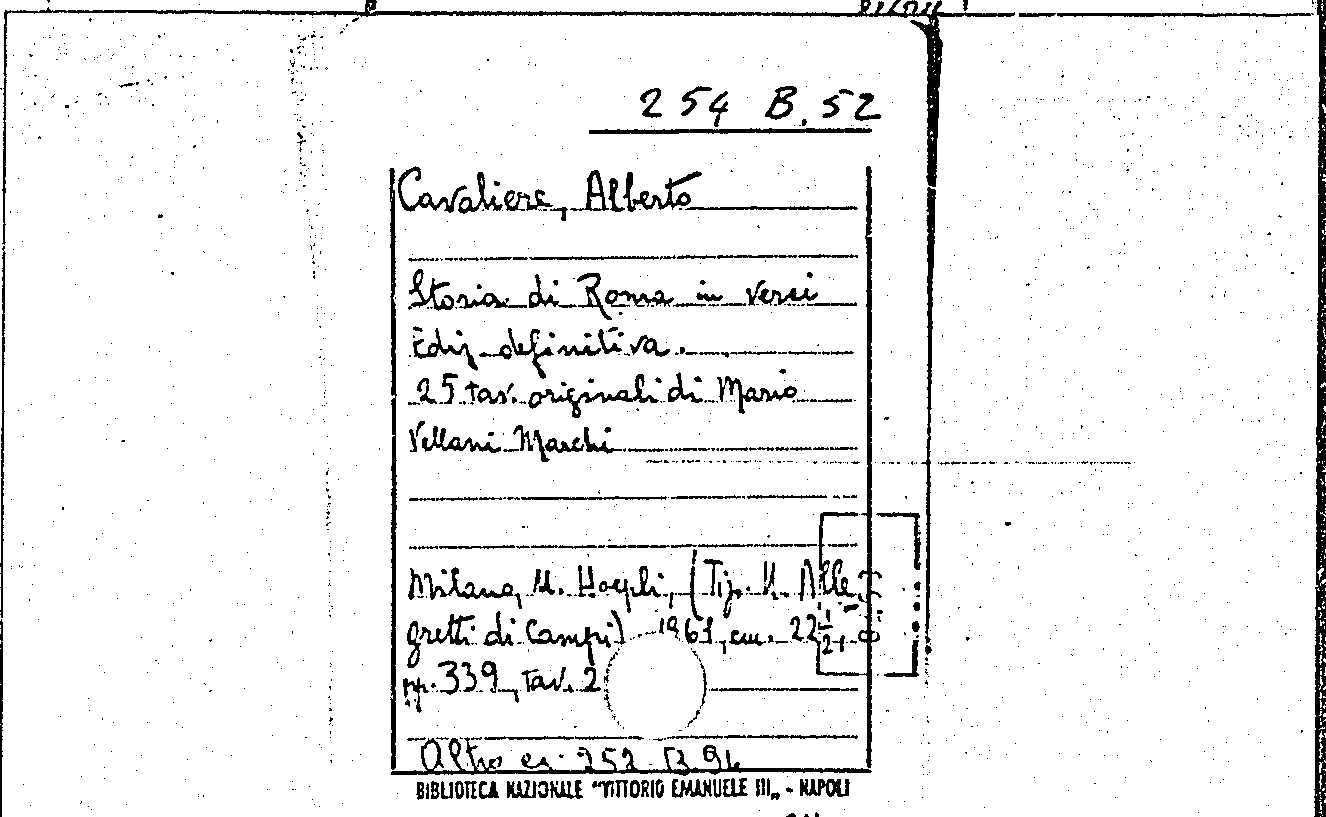 254 B.52
Cavaliere, Alberto
Storia di Roma in versi
Ediz. definitiva.
25 tav. originali di Mario
Vellani Marchi
Milano, U. Hoepli, (Tip. U. Alle-
gretti di Campi) 1961, cm. 22½,
pp. 339, tav. 2
Altro es. 252 B 94
BIBLIOTECA NAZIONALE "VITTORIO EMANUELE III„ - NAPOLI